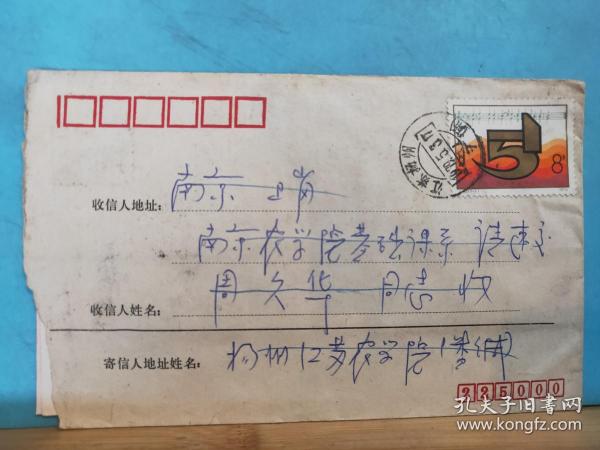 51
8分
江苏扬州
收信人地址：南京 卫岗
南京农学院基础课系 请转交
收信人姓名：周久华 同志收
寄信人地址姓名：扬州江苏农学院
225000
孔夫子旧书网
www.kongfz.com